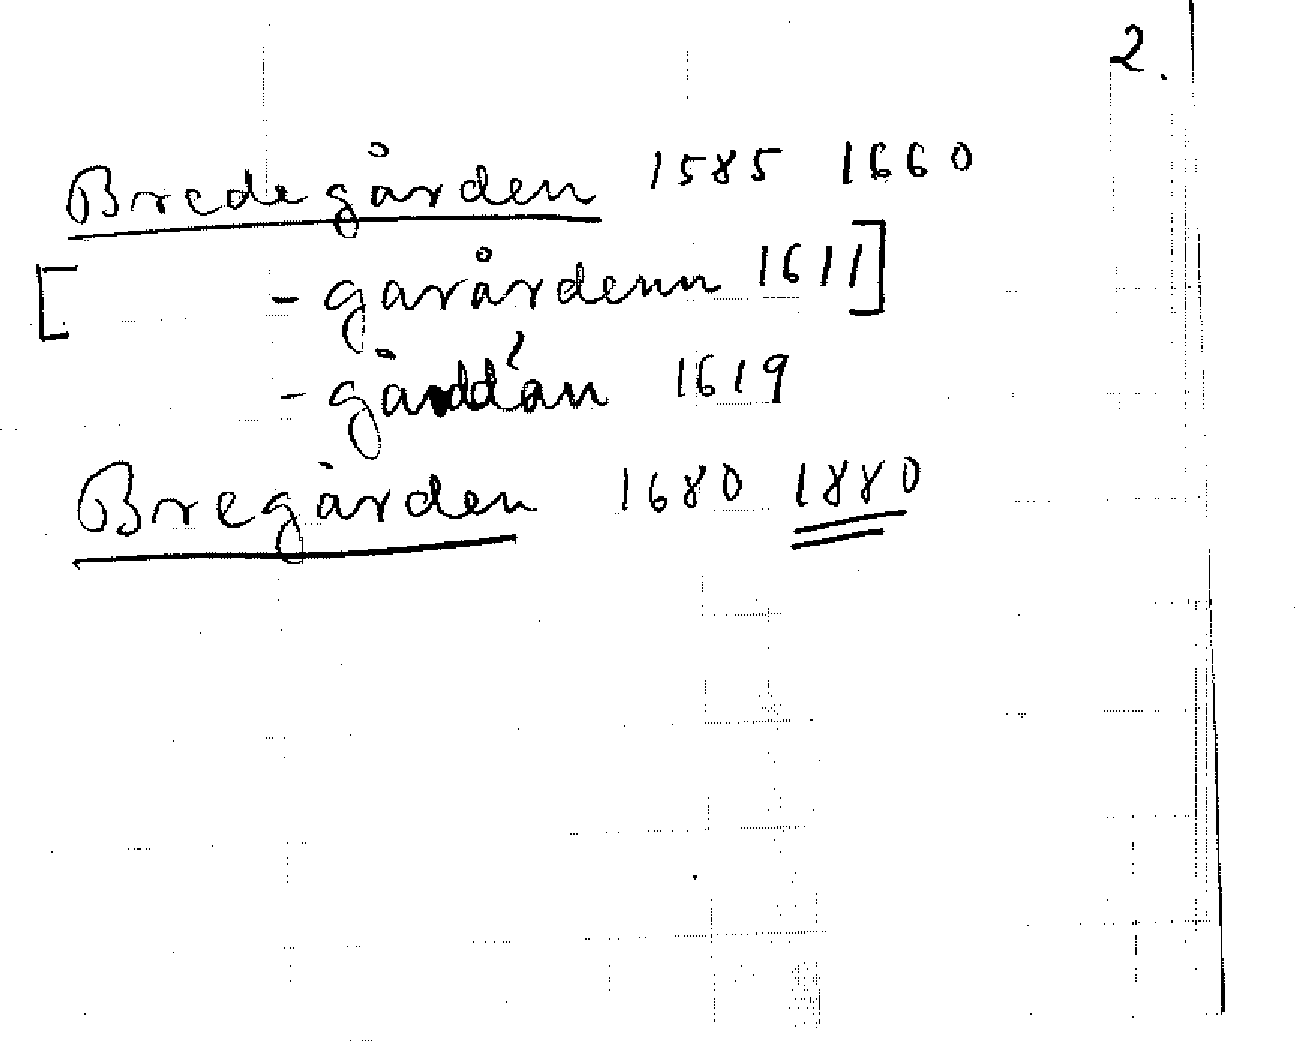 2.
Bredegården 1585 1660
[ - garårdenn 1611]
- gårddån 1619
Bregården 1680 1880